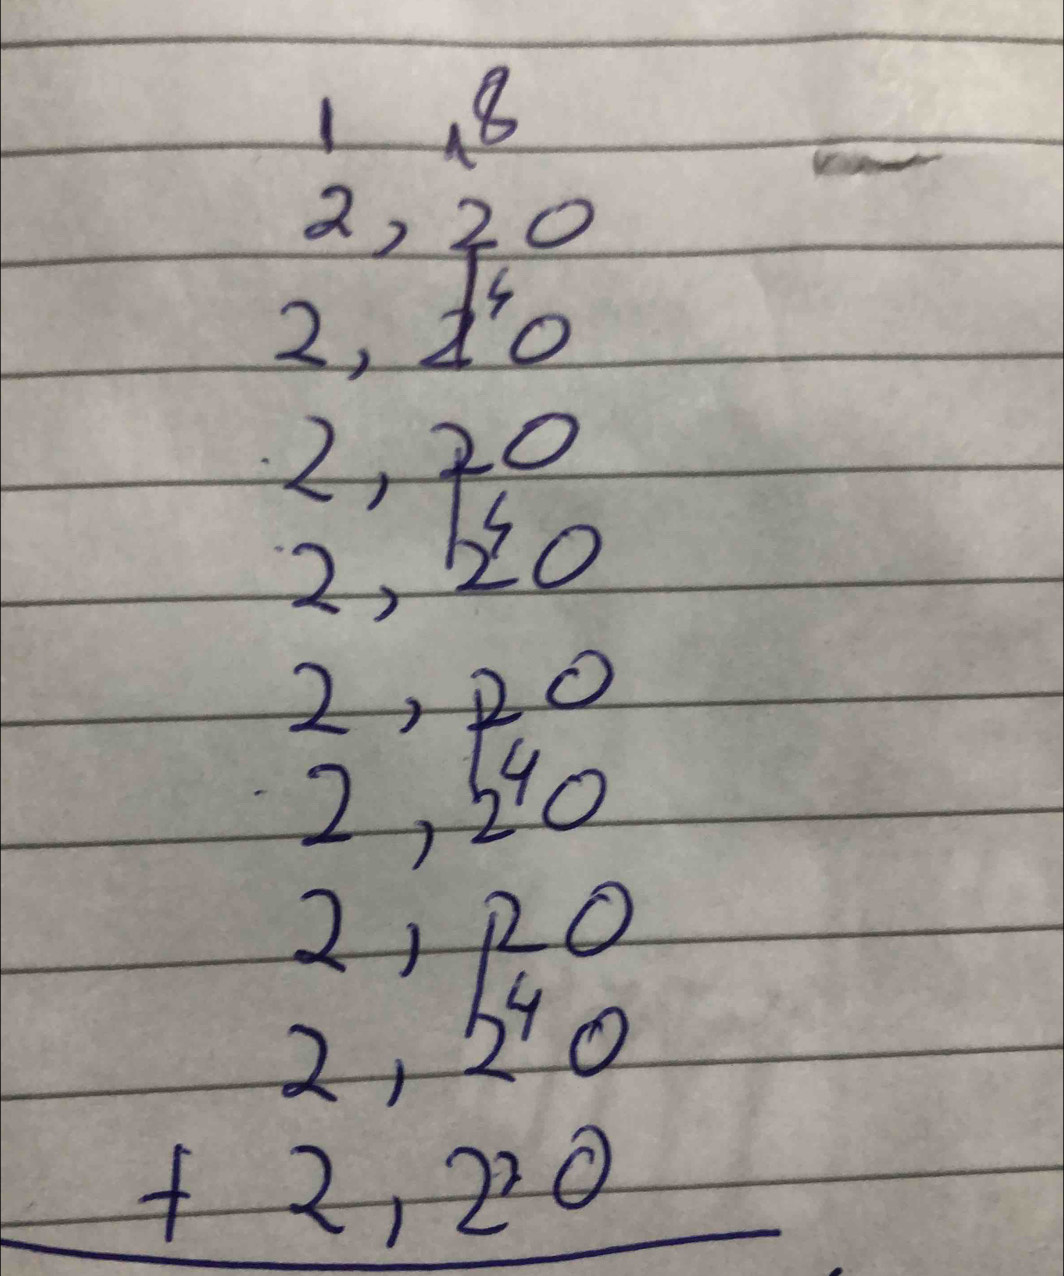 1 ,8
2,20
2,20
2,20
2,20
2,20
2,20
2,20
2,20
+ 2,20